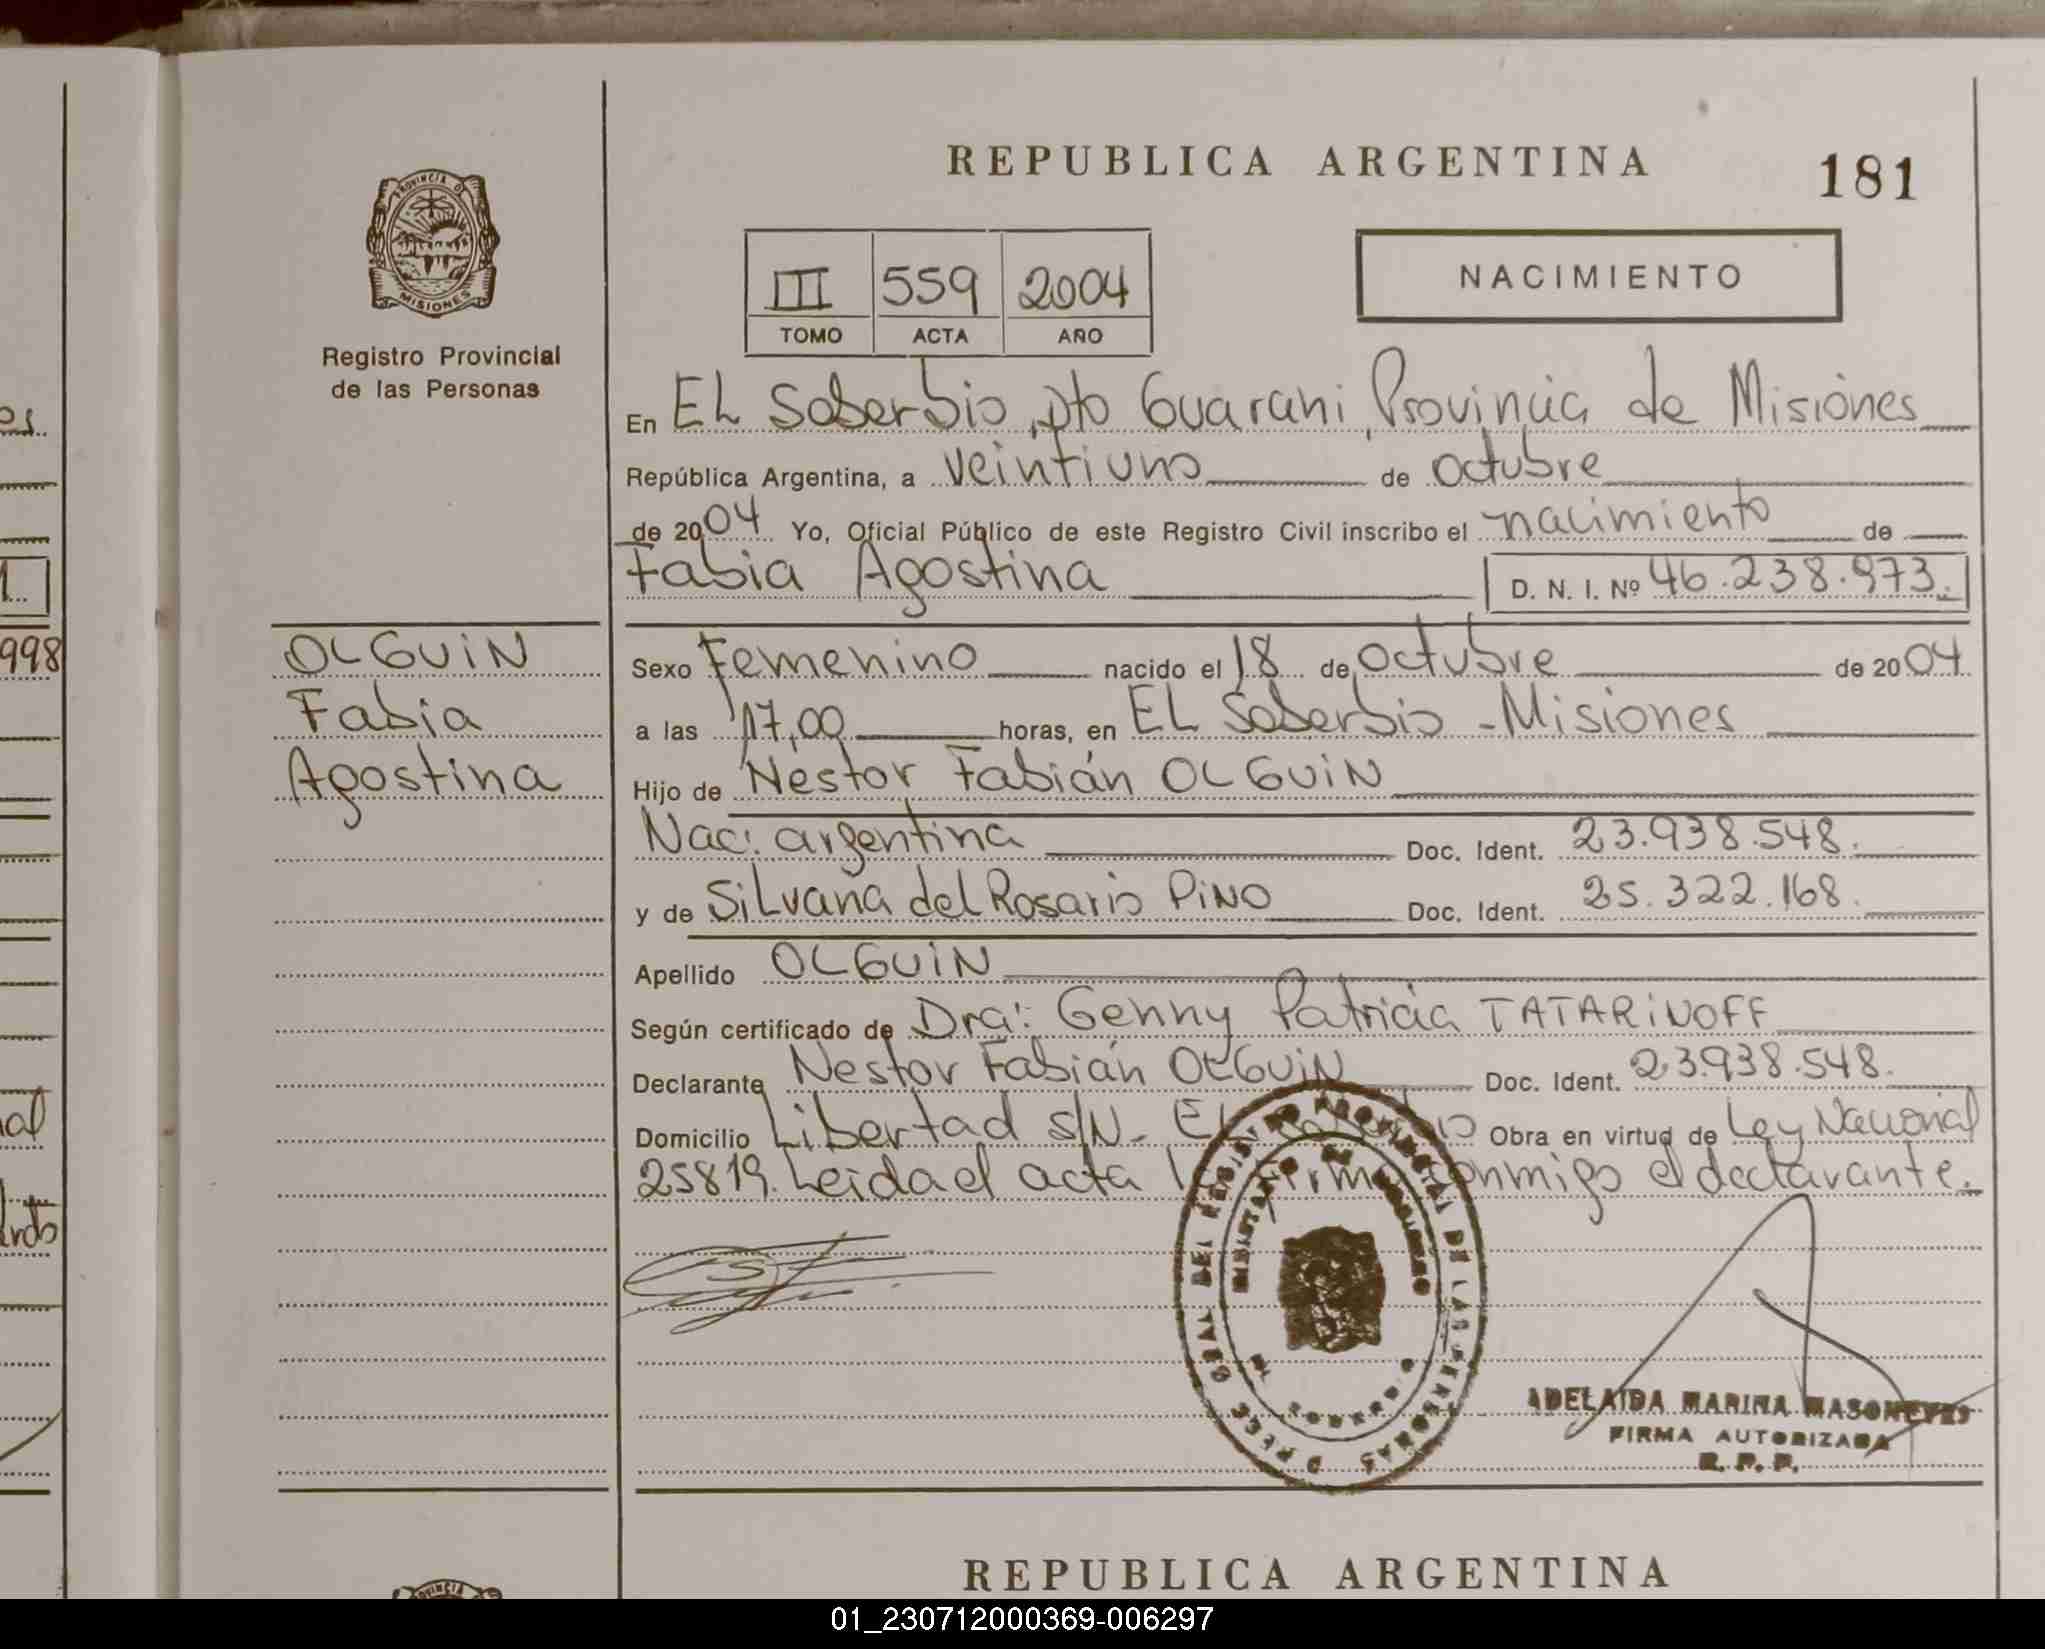 REPUBLICA ARGENTINA
181
PROVINCIA DE
MISIONES
Registro Provincial
de las Personas
III 559 2004
TOMO ACTA AÑO
NACIMIENTO
En EL Soberbio, Dto Guarani, Provincia de Misiones
República Argentina, a veintiuno de octubre
de 2004 Yo, Oficial Público de este Registro Civil inscribo el nacimiento de
Fabia Agostina D. N. I. Nº 46.238.973.
OLGUIN
Fabia
Agostina
Sexo Femenino nacido el 18 de octubre de 2004
a las 17,00 horas, en EL Soberbio - Misiones
Hijo de Nestor Fabián OLGUIN
Nac: argentina Doc. Ident. 23.938.548.
y de SiLvana del Rosario PINO Doc. Ident. 25.322.168.
Apellido OLGUIN
Según certificado de Dra: Genny Patricia TATARINOFF
Declarante Nestor Fabián OLGUIN Doc. Ident. 23.938.548.
Domicilio Libertad S/N- EL Soberbio Obra en virtud de Ley Nacional
25819. Leida el acta la firma conmigo el declarante.
ADELAIDA MARINA
FIRMA AUTORIZADA
R. P. P.
REPUBLICA ARGENTINA
PROVINCIA
998
01_230712000369-006297